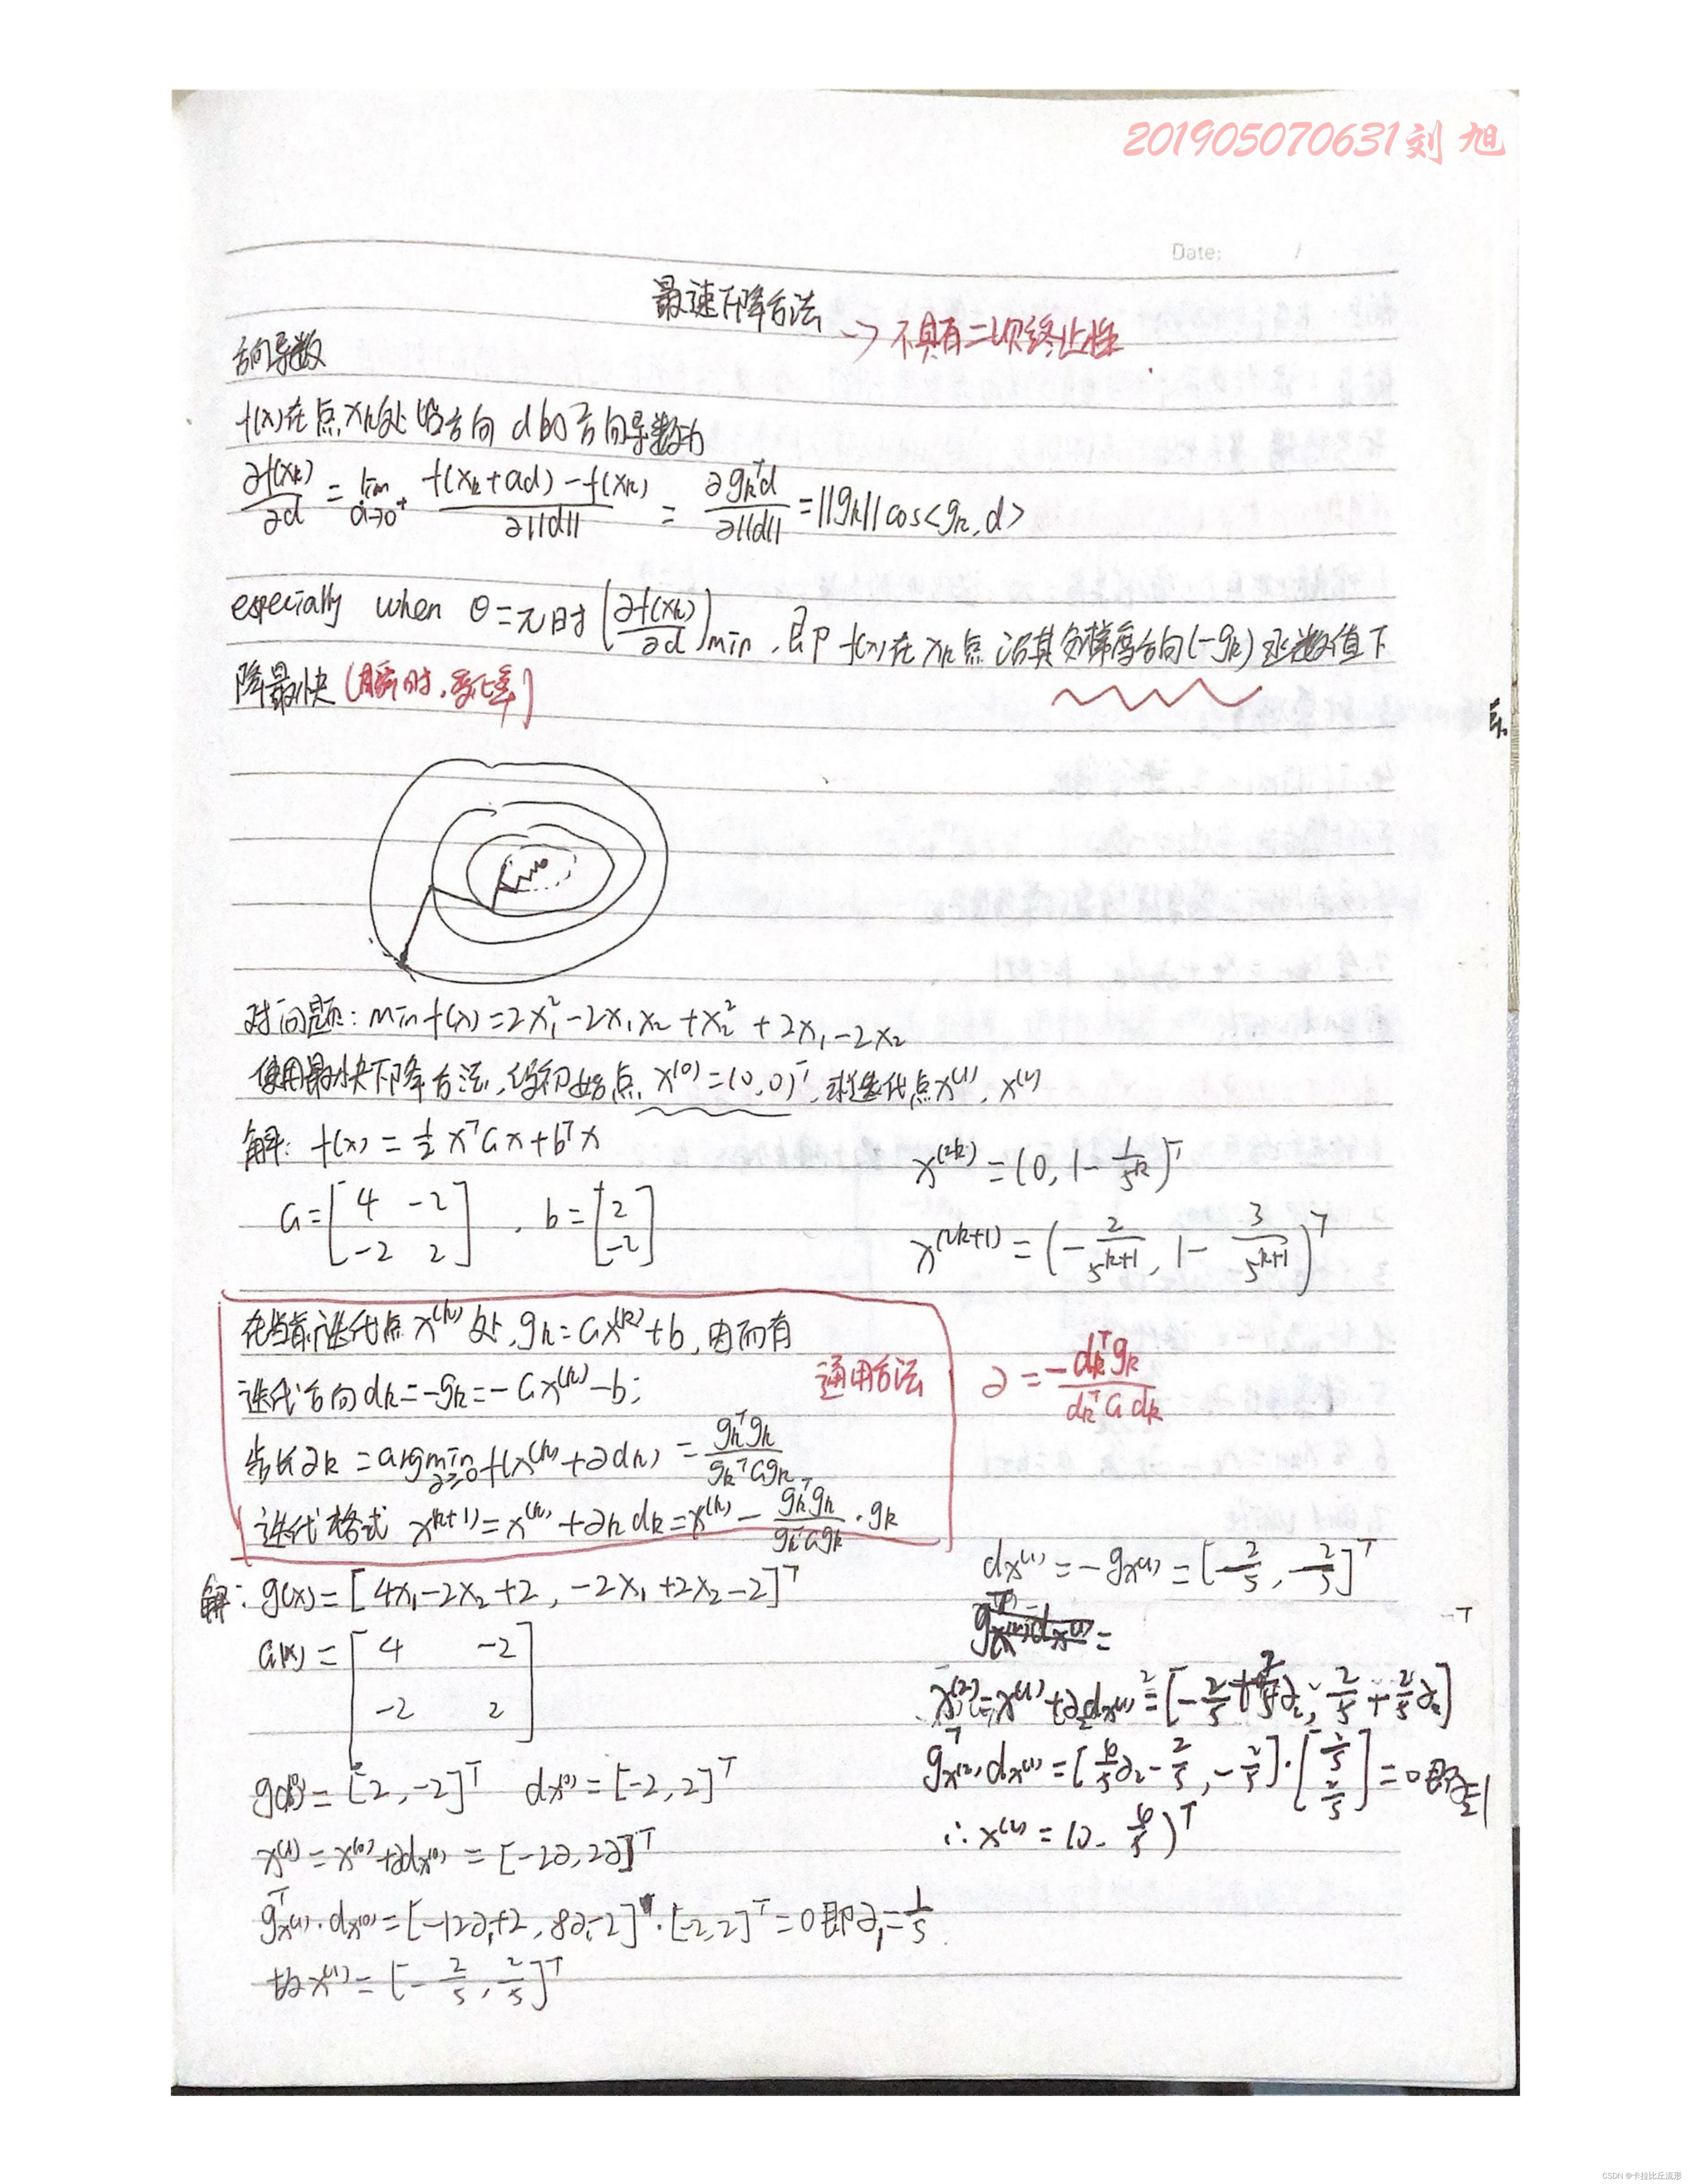 201905070631刘 旭
Date: /
最速下降方法 → 不具有二次终止性
方向导数
f(x)在点xk处沿方向 d的方向导数为
∂f(xk)/∂d = lim α→0+ (f(xk+αd)-f(xk))/(α||d||) = (αgkᵀd)/(α||d||) = ||gk|| cos<gk,d>
especially when θ=π时 (∂f(xk)/∂d)min , 即 f(x)在xk点 沿其负梯度方向(-gk) 函数值下
降最快(瞬时,变化率)
对问题: min f(x)=2x₁²-2x₁x₂+x₂²+2x₁-2x₂
使用最快下降方法,设初始点 x⁽⁰⁾=(0,0)ᵀ, 求迭代点x⁽¹⁾, x⁽²⁾
解: f(x) = ½ xᵀGx+bᵀx
G=[4 -2; -2 2] , b=[2; -2]
x⁽²ᵏ⁾ = (0, 1-1/5ᵏ)ᵀ
x⁽²ᵏ⁺¹⁾ = (-2/5ᵏ⁺¹, 1-3/5ᵏ⁺¹)ᵀ
在当前迭代点 x⁽ᵏ⁾处, gk=Gx⁽ᵏ⁾+b, 因而有
迭代方向dk=-gk=-Gx⁽ᵏ⁾-b;
通用方法
步长αk = argmin α≥0 f(x⁽ᵏ⁾+αdk) = gkᵀgk/gkᵀGgk
迭代格式 x⁽ᵏ⁺¹⁾=x⁽ᵏ⁾+αk dk=x⁽ᵏ⁾-(gkᵀgk/gkᵀGgk)·gk
α = -dkᵀgk/dkᵀG dk
解: g(x)=[4x₁-2x₂+2, -2x₁+2x₂-2]ᵀ
G(x)=[4 -2; -2 2]
g(x⁽⁰⁾)=[2,-2]ᵀ dx⁽⁰⁾=[-2,2]ᵀ
x⁽¹⁾=x⁽⁰⁾+αdx⁽⁰⁾=[-2α,2α]ᵀ
gᵀx⁽¹⁾·dx⁽⁰⁾=[-12α₁+2, 8α₁-2]·[-2,2]ᵀ=0即α₁=1/5
故x⁽¹⁾=[-2/5, 2/5]ᵀ
dx⁽¹⁾=-gx⁽¹⁾=[-2/5, -2/5]ᵀ
x⁽²⁾=x⁽¹⁾+α₂dx⁽¹⁾=[-2/5+2/5α₂, 2/5+2/5α₂]ᵀ
gᵀx⁽²⁾dx⁽¹⁾=[6/5α₂-2/5, -2/5]·[2/5; 2/5]=0即α₂=1
∴ x⁽²⁾=(0, 4/5)ᵀ
CSDN @卡拉比丘流形